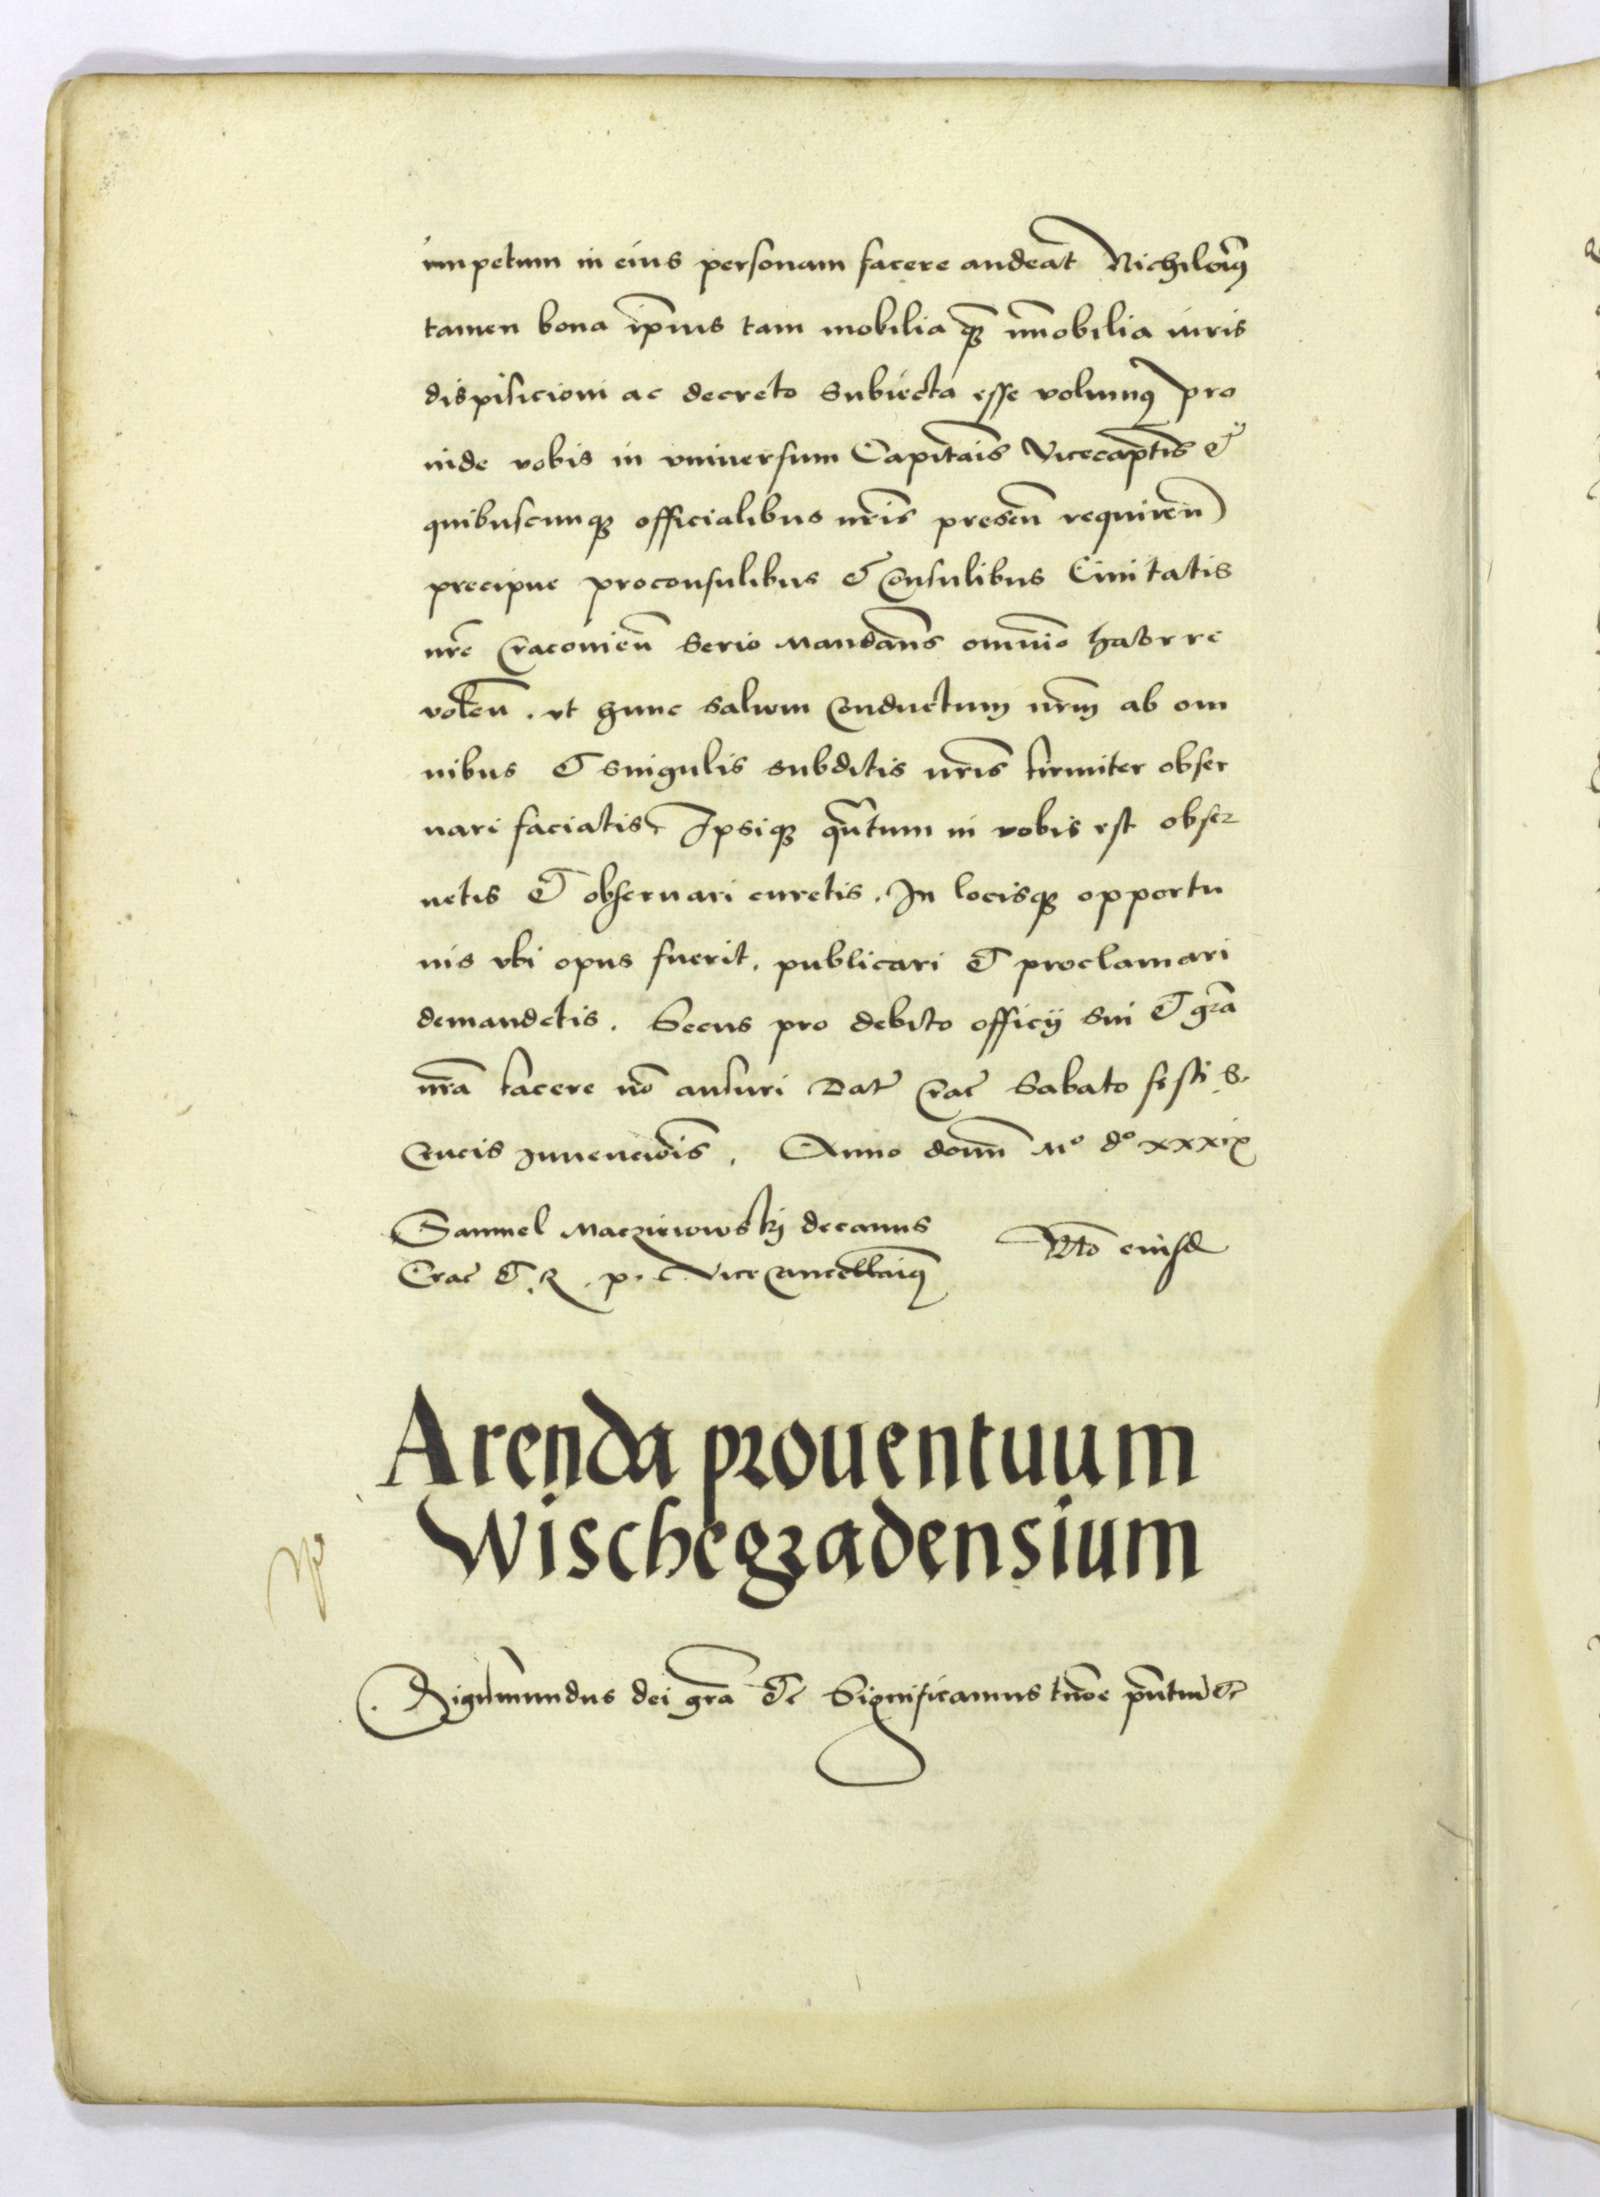 impetum in eius personam facere audeat Nichilomi9
tamen bona ip̃ius tam mobilia q̃ȝ im̃obilia iuris
dispisicioni ac decreto subiecta esse volum9 pro
inde vobis in vniuersum Capitãis Vicecap̃tis &
quibuscunqȝ officialibus nr̃is presẽn requireñ
precipue proconsulibus & Consulibus Ciuitatis
nr̃e Cracouieñ serio Mandañs omnio habere
voleñ. vt hunc saluum Conductum nr̃m ab om
nibus & singulis subditis nr̃is firmiter obser
uari faciatis Ipsiqȝ qũtum in vobis est obser
uetis & obseruari curetis. In locisqȝ opportu
nis vbi opus fuerit. publicari & proclamari
demandetis. Secus pro debito officij sui & gr̃a
nr̃a facere nõ ausuri Dat̃ Crac̃ Sabato festi S.
Crucis Inuencõis. Anno domi Mo do xxxix
Samuel Maczieiowskj decanus
Crac̃ & R. p. c. ViceCancellari9
Rlo eiusd
Arenda prouentuum
Wischegradensium
Sigismundus dei gr̃a &c Significamus tenore p̃ntiũ &c